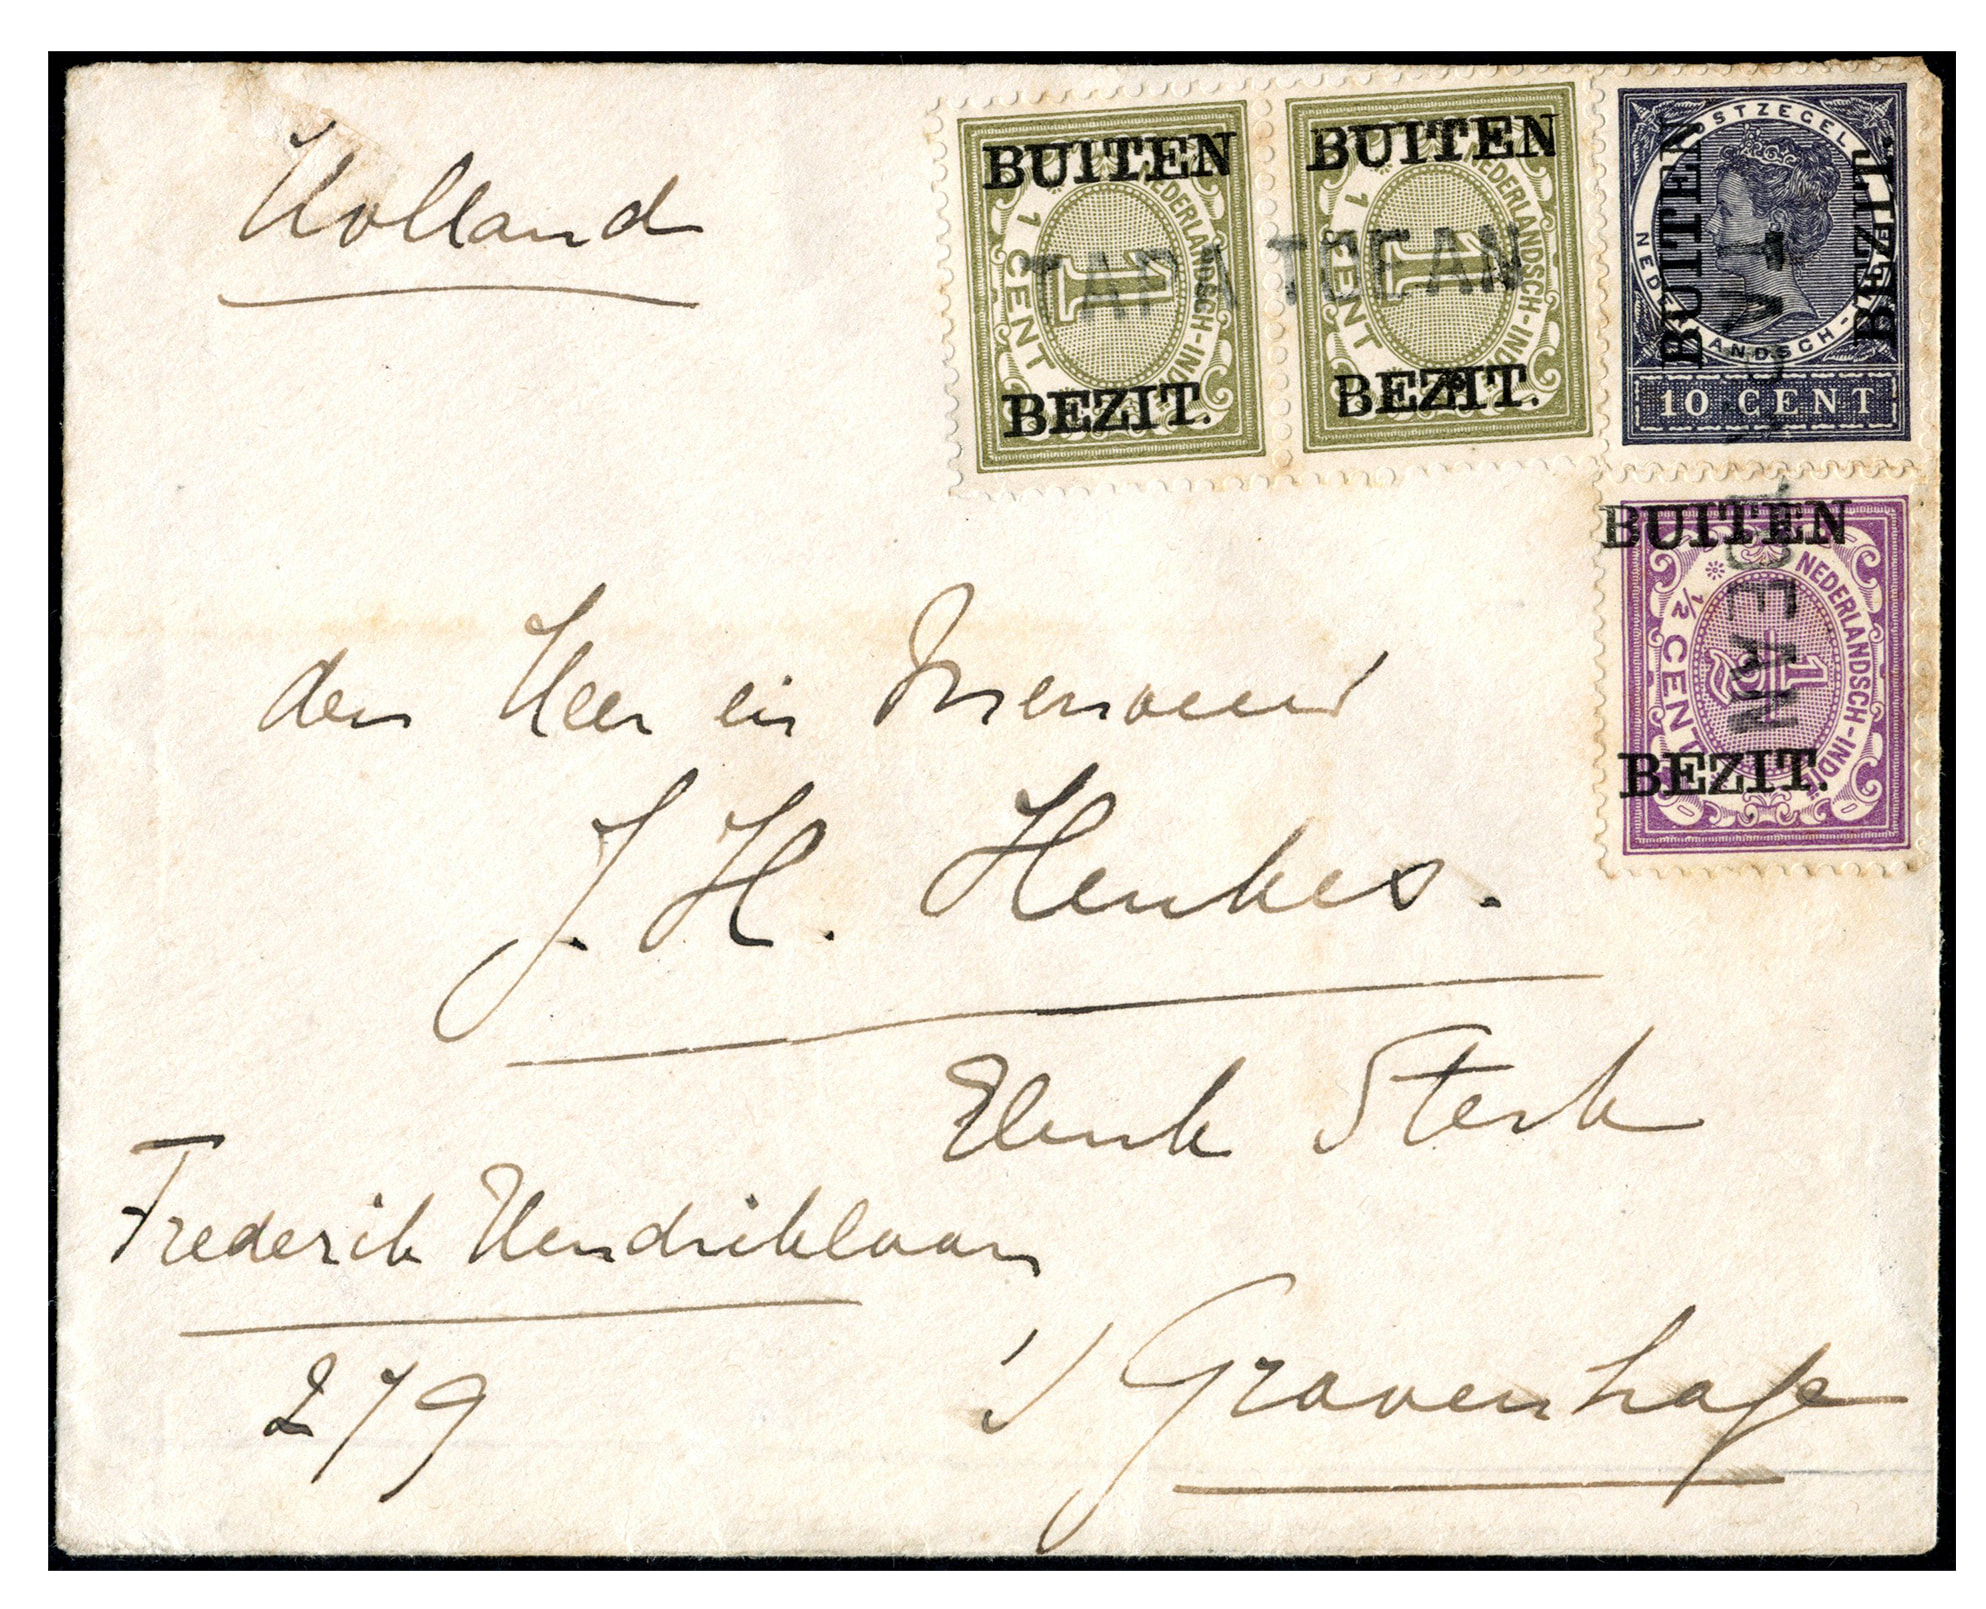 Holland
BUITEN
NEDERLANDSCH-INDIË
1 CENT
1
BEZIT.
BUITEN
NEDERLANDSCH-INDIË
1 CENT
1
BEZIT.
TAPATOEAN
POSTZEGEL
NEDERLANDSCH-INDIË
BUITEN
BEZIT.
10 CENT
BUITEN
NEDERLANDSCH-INDIË
1/2 CENT
1/2
BEZIT.
TAPATOEAN
den Heer en Mevrouw
J. H. Henkes.
Elenk Sterk
Frederik Hendriklaan
279
's Gravenhage